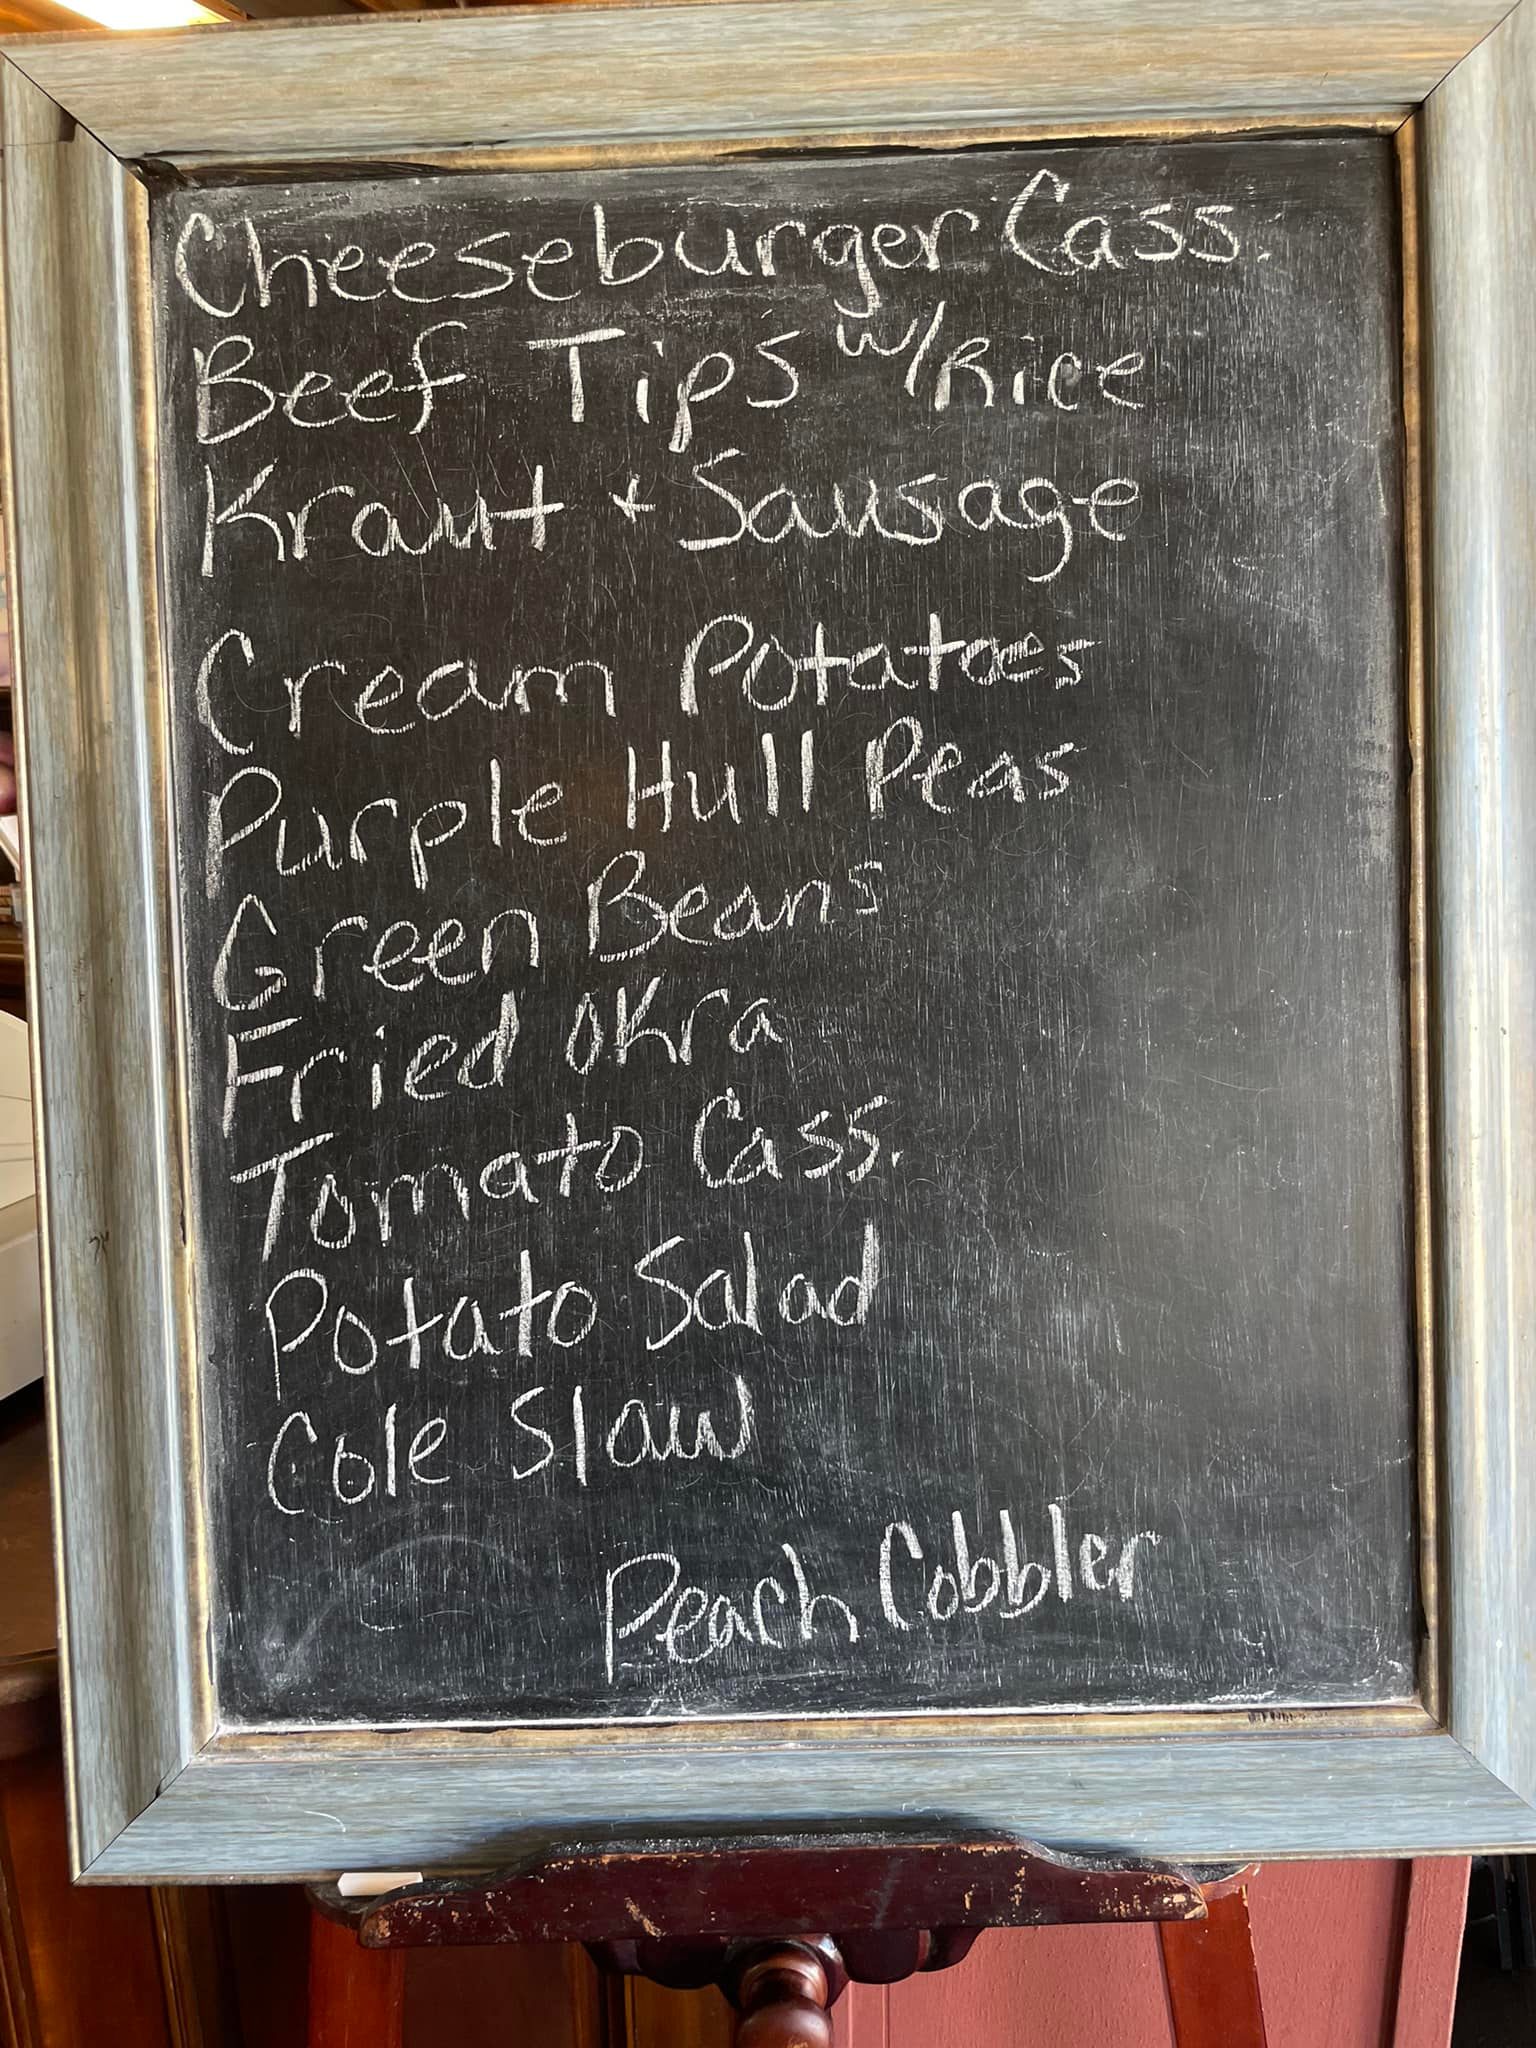 Cheeseburger Cass.
Beef Tips w/Rice
Kraut + Sausage
Cream Potatoes
Purple Hull Peas
Green Beans
Fried Okra
Tomato Cass.
Potato Salad
Cole Slaw
Peach Cobbler